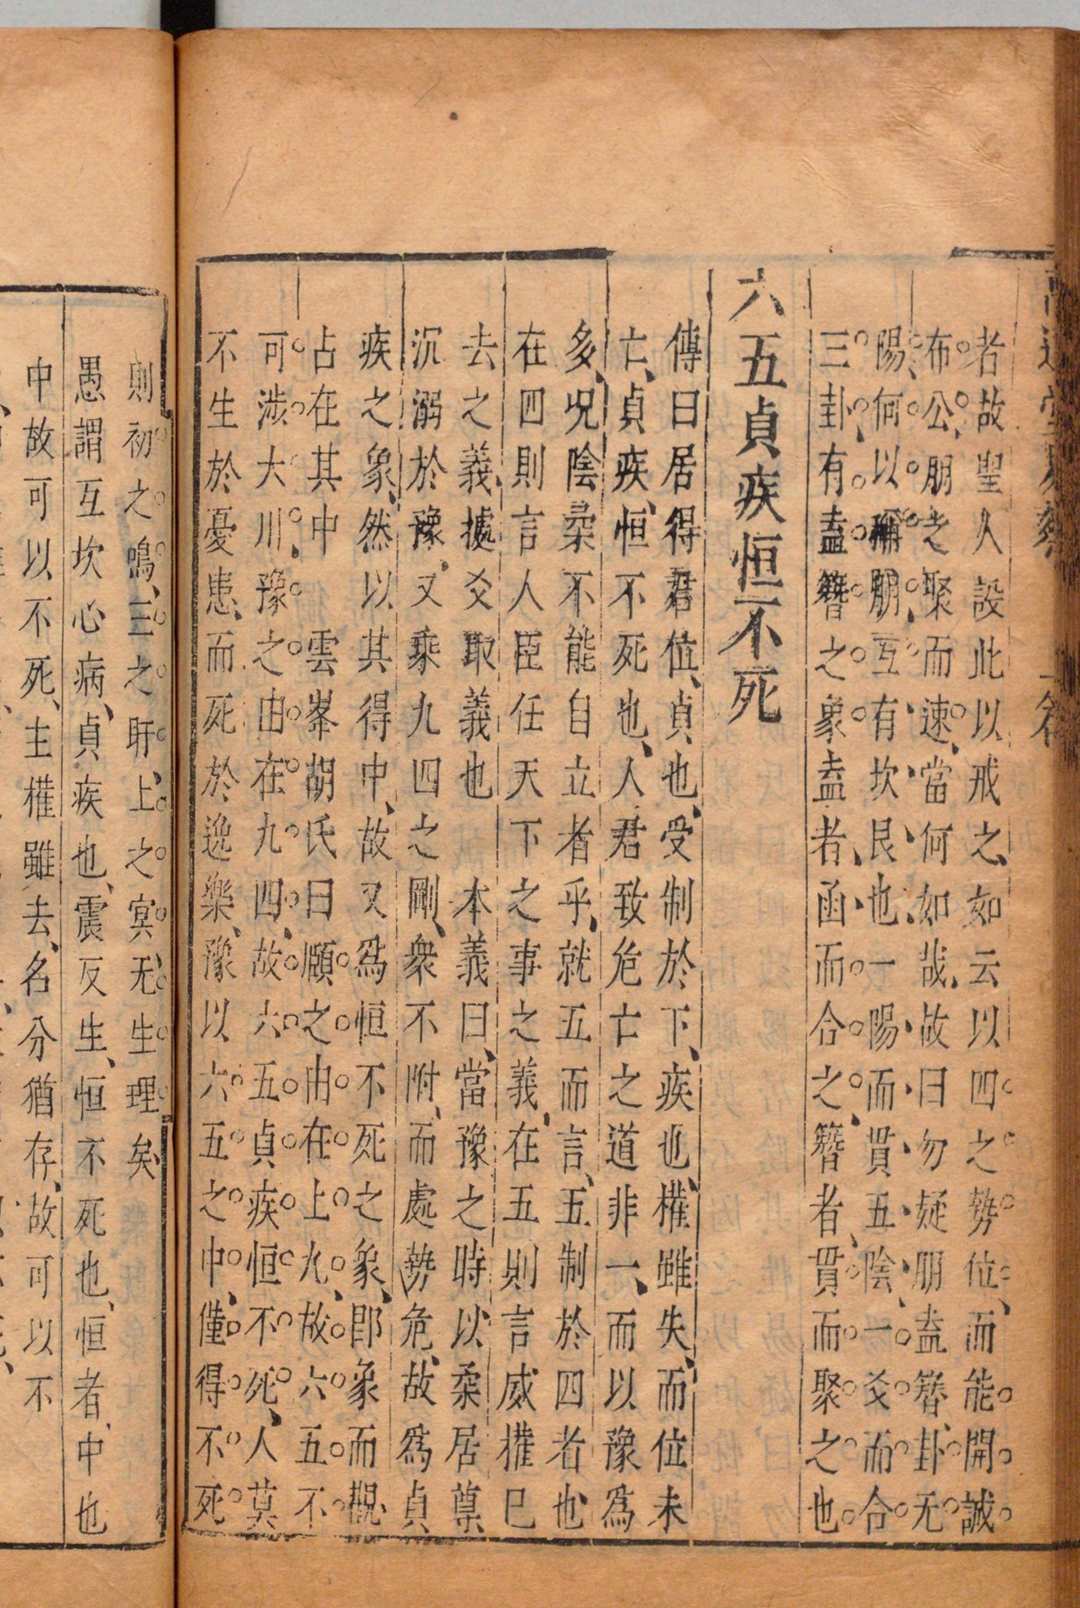 者故聖人設此以戒之如云以四之勢位而能開誠
布公朋之聚而速當何如哉故曰勿疑朋盍簪卦无
陽何以稱朋互有坎艮也一陽而貫五陰一爻而合
三卦有盍簪之象盍者函而合之簪者貫而聚之也
六五貞疾恒不死
傳曰居得君位貞也受制於下疾也權雖失而位未
亡貞疾恒不死也人君致危亡之道非一而以豫為
多況陰柔不能自立者乎就五而言五制於四者也
在四則言人臣任天下之事之義在五則言威權已
去之義㨿爻取義也 本義曰當豫之時以柔居尊
沉溺於豫又乗九四之剛衆不附而處勢危故為貞
疾之象然以其得中故又為恒不死之象卽象而觀
占在其中 雲峯胡氏曰頤之由在上九故六五不
可涉大川豫之由在九四故六五貞疾恒不死人莫
不生於憂患而死於逸樂豫以六五之中僅得不死
則初之鳴三之盱上之㝠无生理矣
愚謂互坎心病貞疾也震反生恒不死也恒者中也
中故可以不死主權雖去名分猶存故可以不